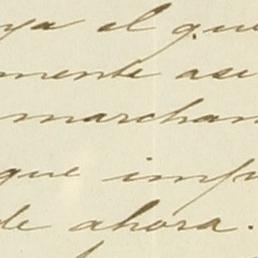 ya el que
mente asi
marchan
que impu
de ahora.